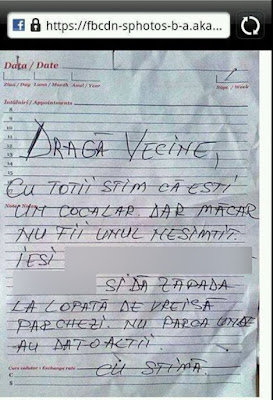 https://fbcdn-sphotos-b-a.aka...
Data / Date
Ziua / Day Luna / Month Anul / Year
Săpt. / Week
Întâlniri / Appointments
8
9
10
11
12
13
14
15
DRAGĂ VECINE,
CU TOTII STIM CĂ ESTI
UN COCALAR. DAR MACAR
NU FII UNUL NESIMTIT.
IESI
SI DĂ ZAPADA
LA LOPATĂ DE VREI SĂ
PARCHEZI. NU PARCA UNDE
AU DAT-O ALTII
CU STIMĂ.
Curs valutar / Exchange rate
C
S